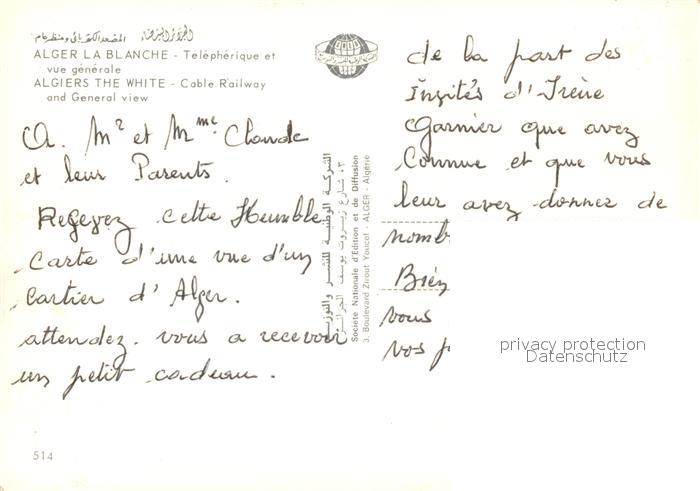 الجزائر البيضاء المصعد الكهربائي ومنظر عام
ALGER LA BLANCHE - Téléphérique et
vue générale
ALGIERS THE WHITE - Cable Railway
and General view
A. Mr et Mme. Claude
et leur Parents.
Reçevez cette Humble
Carte d'une vue d'un
Cartier d'Alger.
attendez. vous a recevoir
un petit cadeau.
514
الشركة الوطنية للنشر والتوزيع
٣، شارع زيروت يوسف الجزائر
Societe Nationale d'Edition et de Diffusion
3, Boulevard Zirout Youcef - ALGER - Algérie
de la part des
Invités d'Irène
Garnier que avez
Connue et que vous
leur avez donnez de
nomb
Bién
vous
vos p
privacy protection
Datenschutz